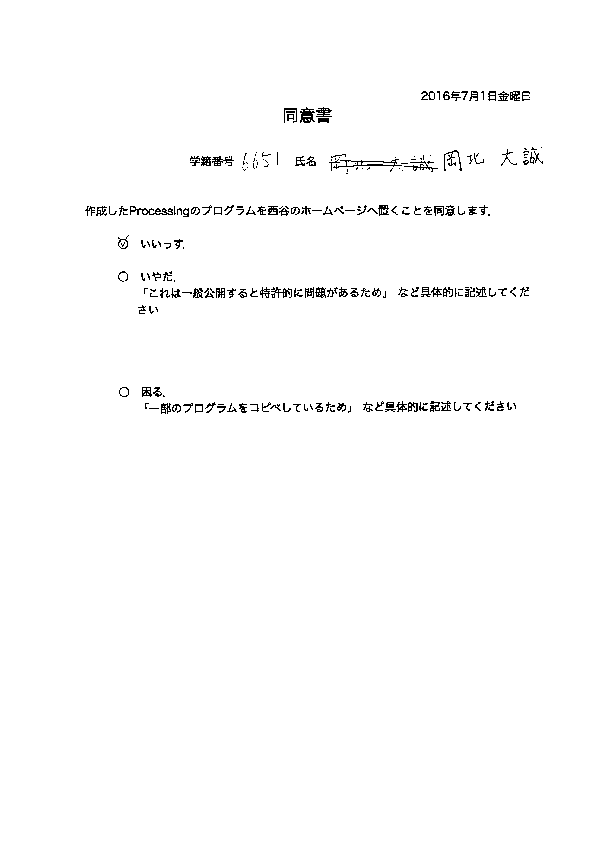 2016年7月1日金曜日
同意書
学籍番号 6651 氏名 岡北 大誠 岡北 大誠
作成したProcessingのプログラムを西谷のホームページへ置くことを同意します．
いいっす．
いやだ．
「これは一般公開すると特許的に問題があるため」 など具体的に記述してくだ
さい
困る．
「一部のプログラムをコピペしているため」 など具体的に記述してください